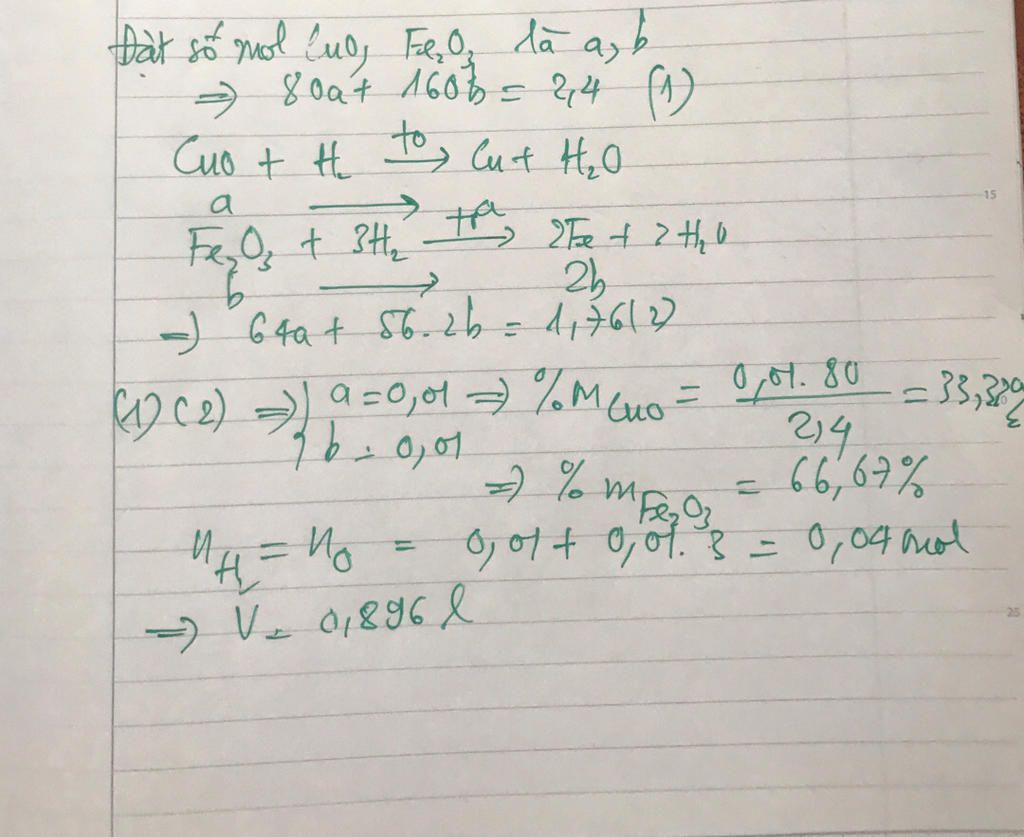 Đặt số mol CuO, Fe₂O₃ là a, b
⇒ 80a + 160b = 2,4 (1)
CuO + H₂ →(to) Cu + H₂O
a ⟶
Fe₂O₃ + 3H₂ → 2Fe + 3H₂O
b ⟶ 2b
⇒ 64a + 56.2b = 1,76 (2)
(1) (2) ⇒ { a = 0,01 ⇒ %m CuO = 0,01.80 / 2,4 = 33,33%
b = 0,01
⇒ % m Fe₂O₃ = 66,67%
n H₂ = n O = 0,01 + 0,01.3 = 0,04 mol
⇒ V = 0,896 l
15
25